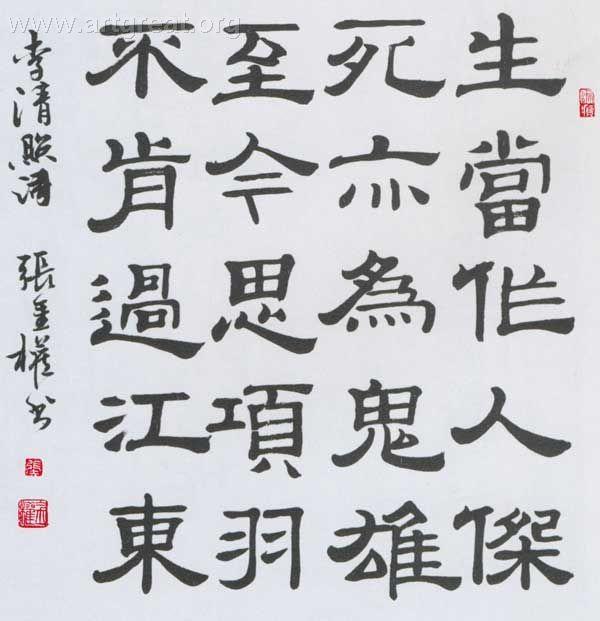 www.artgreat.org
生當作人傑
死亦為鬼雄
至今思項羽
不肯過江東
李清照詩 張金權书
張